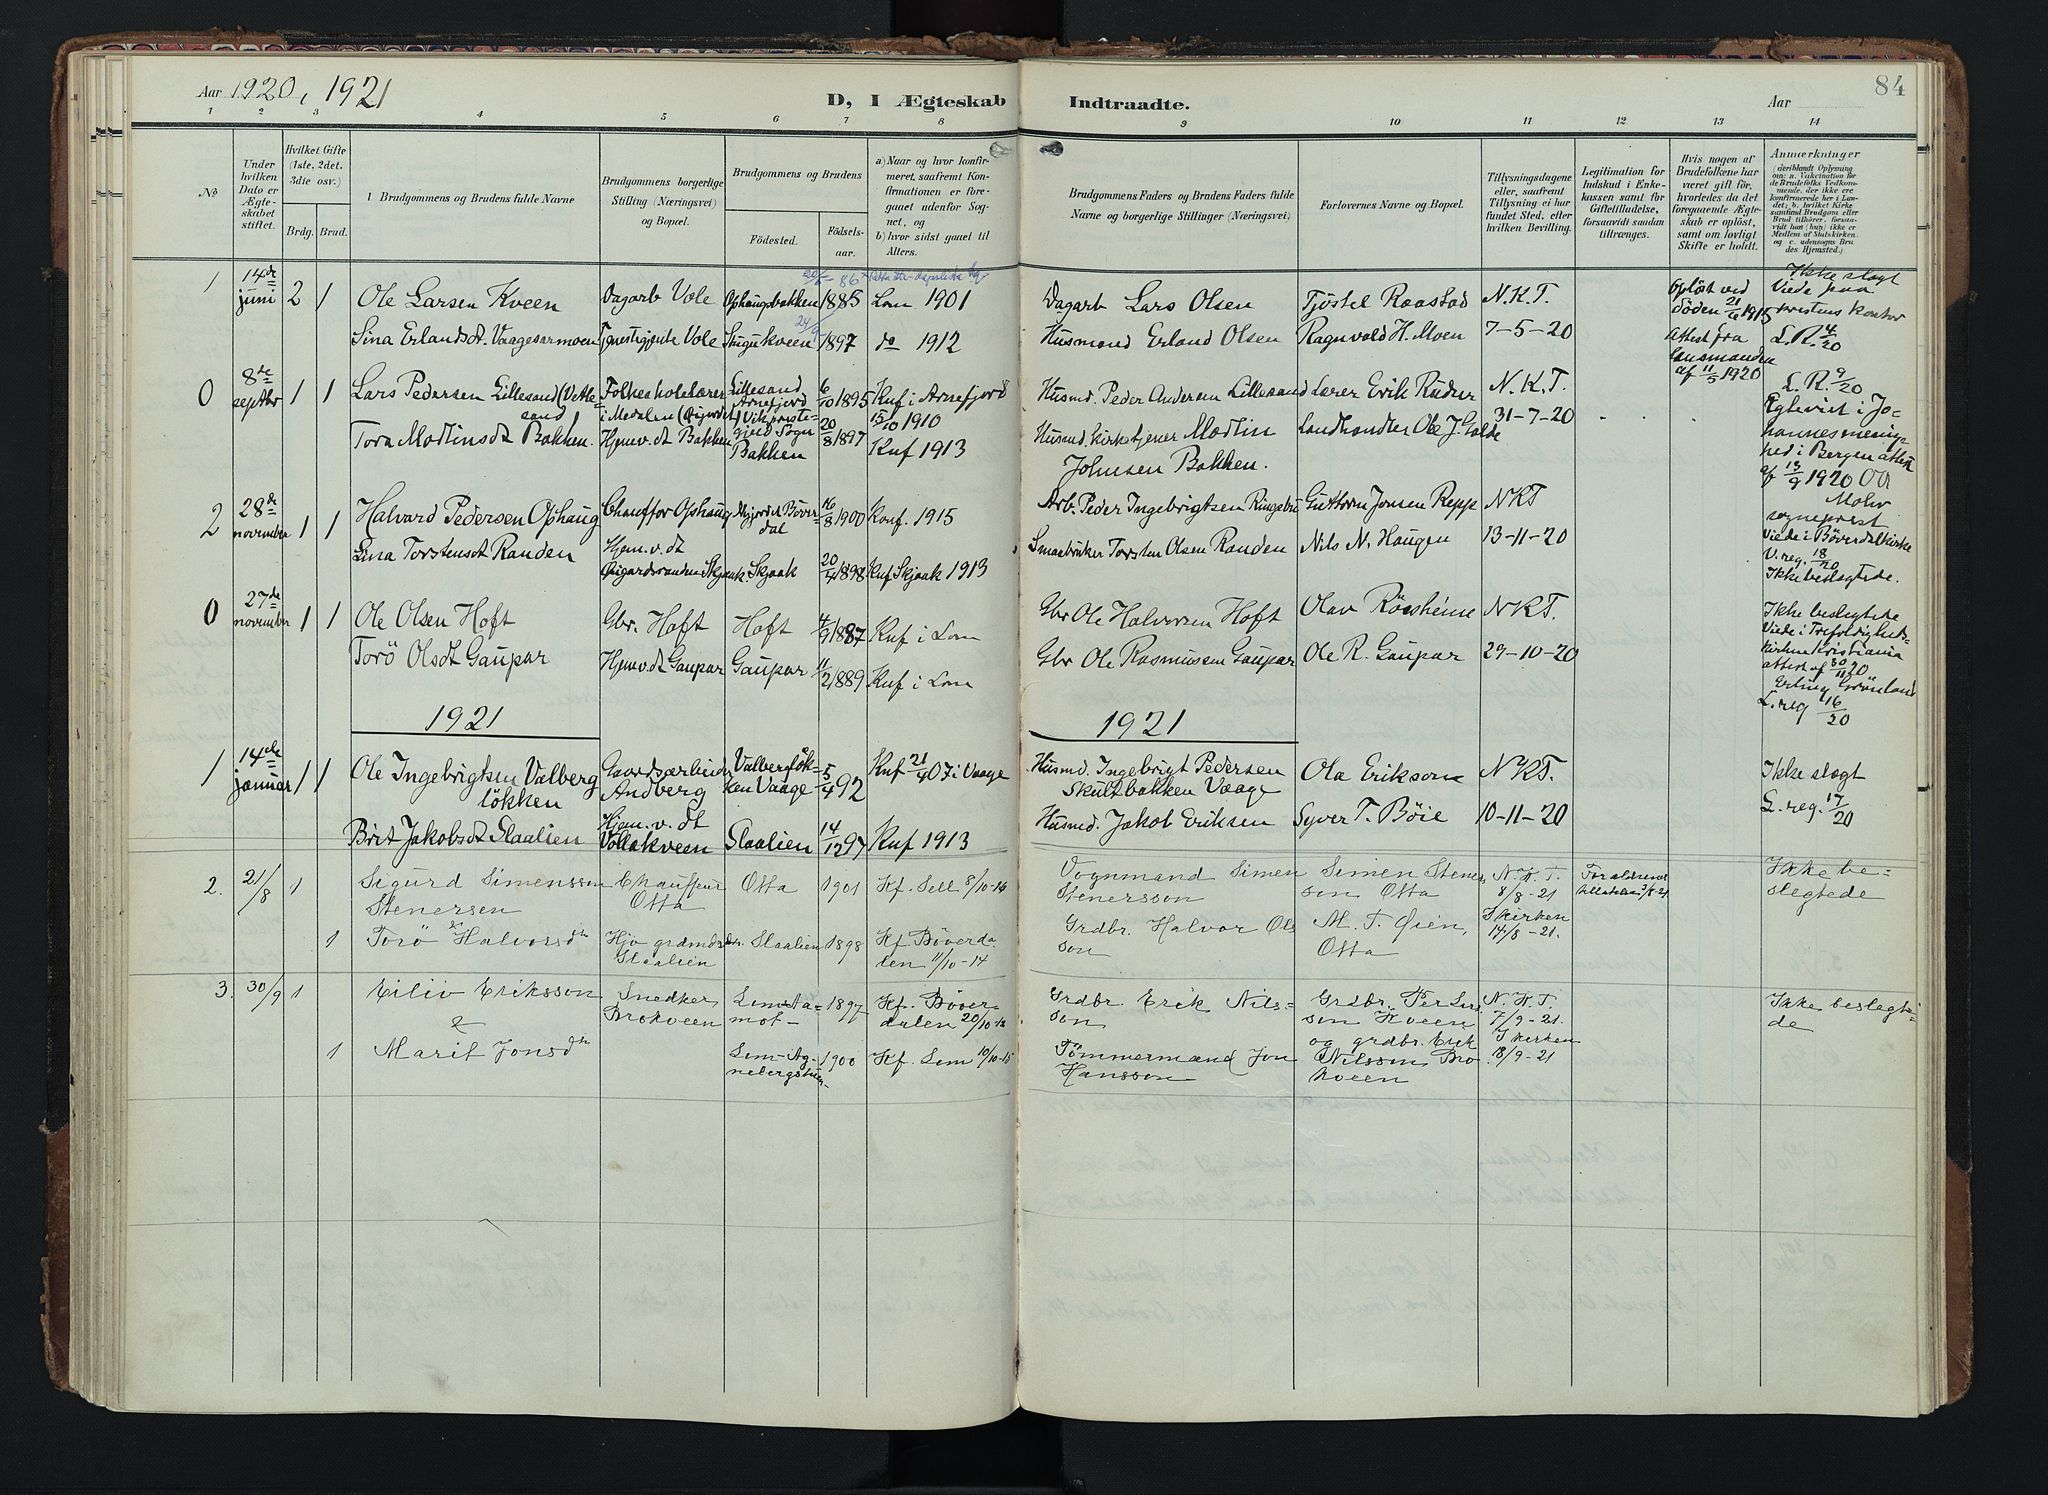 Aar 1920, 1921
D, I Ægteskab Indtraadte.
Aar
84
1 2 3 4 5 6 7 8 9 10 11 12 13 14
No
Under hvilken Dato er Ægteskabet stiftet.
Hvilket Gifte (1ste, 2det, 3die osv.)
Brdg. Brud.
Brudgommens og Brudens fulde Navne
Brudgommens borgerlige Stilling (Næringsvei) og Bopæl.
Brudgommens og Brudens
Fødested.
Fødselsaar.
a) Naar og hvor konfirmeret, saafremt Konfirmationen er foregaaet udenfor Sognet, og
b) hvor sidst gaaet til Alters.
Brudgommens Faders og Brudens Faders fulde Navne og borgerlige Stillinger (Næringsvei)
Forlovernes Navne og Bopæl.
Tillysningsdagene eller, saafremt Tillysning ei har fundet Sted, efter hvilken Bevilling.
Legitimation for Indskud i Enkekassen samt for Giftetilladelse, forsaavidt saadan tiltrænges.
Hvis nogen af Brudefolkene har været gift før, hvorledes da det foregaaende Ægteskab er opløst, samt om lovligt Skifte er holdt.
Anmærkninger
1 14de juni 2 1
Ole Larsen Kveen
Dagarb Vole
Ophaugbakken
1885
Lom 1901
Dagarb Lars Olsen
Tjøstel Raastad
N.K.T.
Opløst ved Döden 21/6 1915
Attest fra Lensmanden af 11/5 1920
Ikke slegt
Viede paa prestens kontor
L.R. 4/20
Sina Erlandsdt. Vaagesarmoen
Tjenestigjente Vole
Stugukveen
24/9 1897
do 1912
Husmand Erland Olsen
Ragnvald H. Moen
7-5-20
0 8de septbr 1 1
Lars Pedersen Lillesand (Vetlesand)
Folkeskolelærer i Medalen
Lillesand Arnefjord Vik prestegjeld Sogn
6/10 1895
Knf i Arnefjord 15/10 1910
Husmd. Peder Andersen Lillesand
Lærer Erik Ruder
N.K.T.
L.R. 9/20
Egteviet i Johannes menighed i Bergen attest af 13/9 1920
Mohr sogneprest
Tora Modtinsdt Bakken.
Hjemv.dt Bakken
Bakken
20/8 1897
Knf 1913
Husmd. kirketjener Modtin Johnsen Bakken.
Landhandler Ole J. Galde
31-7-20
2 28de november 1 1
Halvard Pedersen Ophaug
Chauffør Ophaug
Böverdal
16/8 1900
Konf. 1915
Arb. Peder Ingebrigtsen Ringebu
Guthorm Jonsen Repp
NKT
Viede i Böverdal kirke
V.reg. 18/20
Ikke beslegtede.
Lina Torstensdt Randen
Hjem.v.dt Skjaak
Skjaak
20/4 1898.
Knf Skjaak 1913
Smaabruker Torsten Olsen Randen
Nils N. Haugen
13-11-20
0 27de november 1 1
Ole Olsen Hoft
Gbr. Hoft
Hoft
4/9 1887
Knf i Lom
Gbr Ole Halvorsen Hoft
Olav Röisheim
NKT.
Ikke beslegtede
Viede i Trefoldighedskirken Kristiania
attest af 30/11 20
Erling Grønland
L.reg 16/20
Torö Olsdt Gaupar
Hjmv.dt Gaupar
Gaupar
11/2 1889
Knf i Lom
Gbr Ole Rasmussen Gaupar
Ole R. Gaupar
29-10-20
1921
1921
1 14de januar 1 1
Ole Ingebrigtsen Valberglökken
Gaardsarbeider Andberg
Valberglökken Vaage
5/4 92
Knf 21/4 07 i Vaage
Husmd. Ingebrigt Pedersen Skultbakken Vaage
Ola Erikson
NKT.
Ikke slegt
L.reg. 17/20
Brit Jakobsdt Slaalien
Hjem.v.dt Vollakveen
Slaalien
14/12 97
Knf 1913
Husmd. Jakob Eriksen
Syver T. Böie
10-11-20
2. 21/8 1
Sigurd Simensson Stenersen
Chauffeur Otta
Otta
1901
Kf. Sell 8/10-16
Vognmand Simen Stenersson
Simen Stenersson Otta
N.K.T. 8/8-21
Ikke beslegtede
&
1
Torö Halvorsdtr
Slaalien
Slaalien
1898
Kf. Böverdalen 11/10-14
Grdbr. Halvor Olsson
M. T. Øien, Otta
I kirken 14/8-21.
3. 30/9 1
Eiliv Eriksson
Snedker Brokveen
1897
Kf. Böverdalen 20/10-12
Grdbr. Erik Nilsson
Grdbr. Per Larsson Kveen og grdbr. Erik Nilsson Brokveen
N.K.T. 7/9-21.
I kirken 8/9-21
Ikke beslegtede
&
1
Marit Jonsdtr
1900
Kf. Lom 10/10-15
Tömmermand Jon Hansson